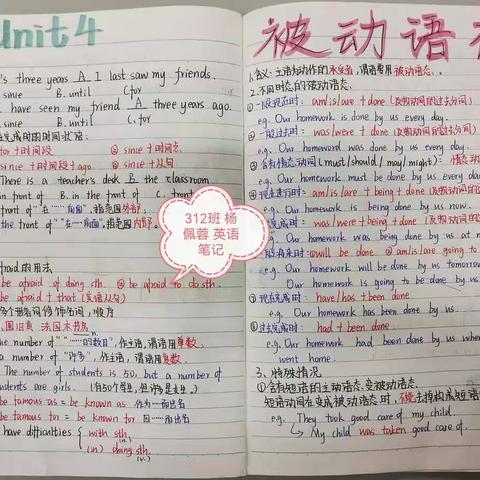 Unit 4
's three years A I last saw my friends.
since B. until C. for
I have seen my friend A three years ago.
since B. until C. for
完成时的时间状语:
for + 时间段 ② since + 时间点
since + 时间段 + ago ④ since + 从句
There is a teacher's desk B the classroom
in front of B. in the front of C. front
front of "在…前面", 指范围外部;
the front of "在…前面", 指范围内部.
312班 杨
佩蓉 英语
笔记
afraid的用法
be afraid of doing sth. ② be afraid to do sth.
be afraid + that (宾语从句)
多个形容词修饰名词,顺序
国旧
the number of "……的数目", 作主语, 谓语用单数,
a number of "许多", 作主语, 谓语用复数.
The number of students is 50, but a number of
students are girls. (有50个学生,但许多是女生.)
be famous as = be known as 作为…而出名
be famous for = be known for 因……而出名
have difficulties { with sth.
(in) doing sth.
(v.)
被动语态
1. 含义: 主语为动作的承受者, 谓语要用被动语态.
2. 不同时态的被动语态.
① 一般现在时: am/is/are + done (及物动词的过去分词)
e.g. Our homework is done by us every day.
② 一般过去时: was/were + done (及物动词的过去分词)
e.g. Our homeword was done by us every day.
③ 含有情态动词 (must/should/may/might): 情态动
e.g. Our homework must be done by us every day.
④ 现在进行时: am/is/are + being + done (及物动词的过
e.g. Our homework is being done by us now.
过去进行时: was/were + being + done (及物动词的
e.g. Our homework was being done by us at
一般将来时: ① will be done ② am/is/are going to
e.g. Our homework will be done by us tomorrow
Our homework is going to be done by us
⑦ 现在完成时: have/has + been done
⑧ 过去完成时: had + been done
e.g. Our homework had been done by us when
went home.
3. 特殊情况
① 含有短语的主动语态变被动语态.
短语动词在变成被动语态时, 不能去掉构成短语
e.g. They took good care of my child.
My child was taken good care of.